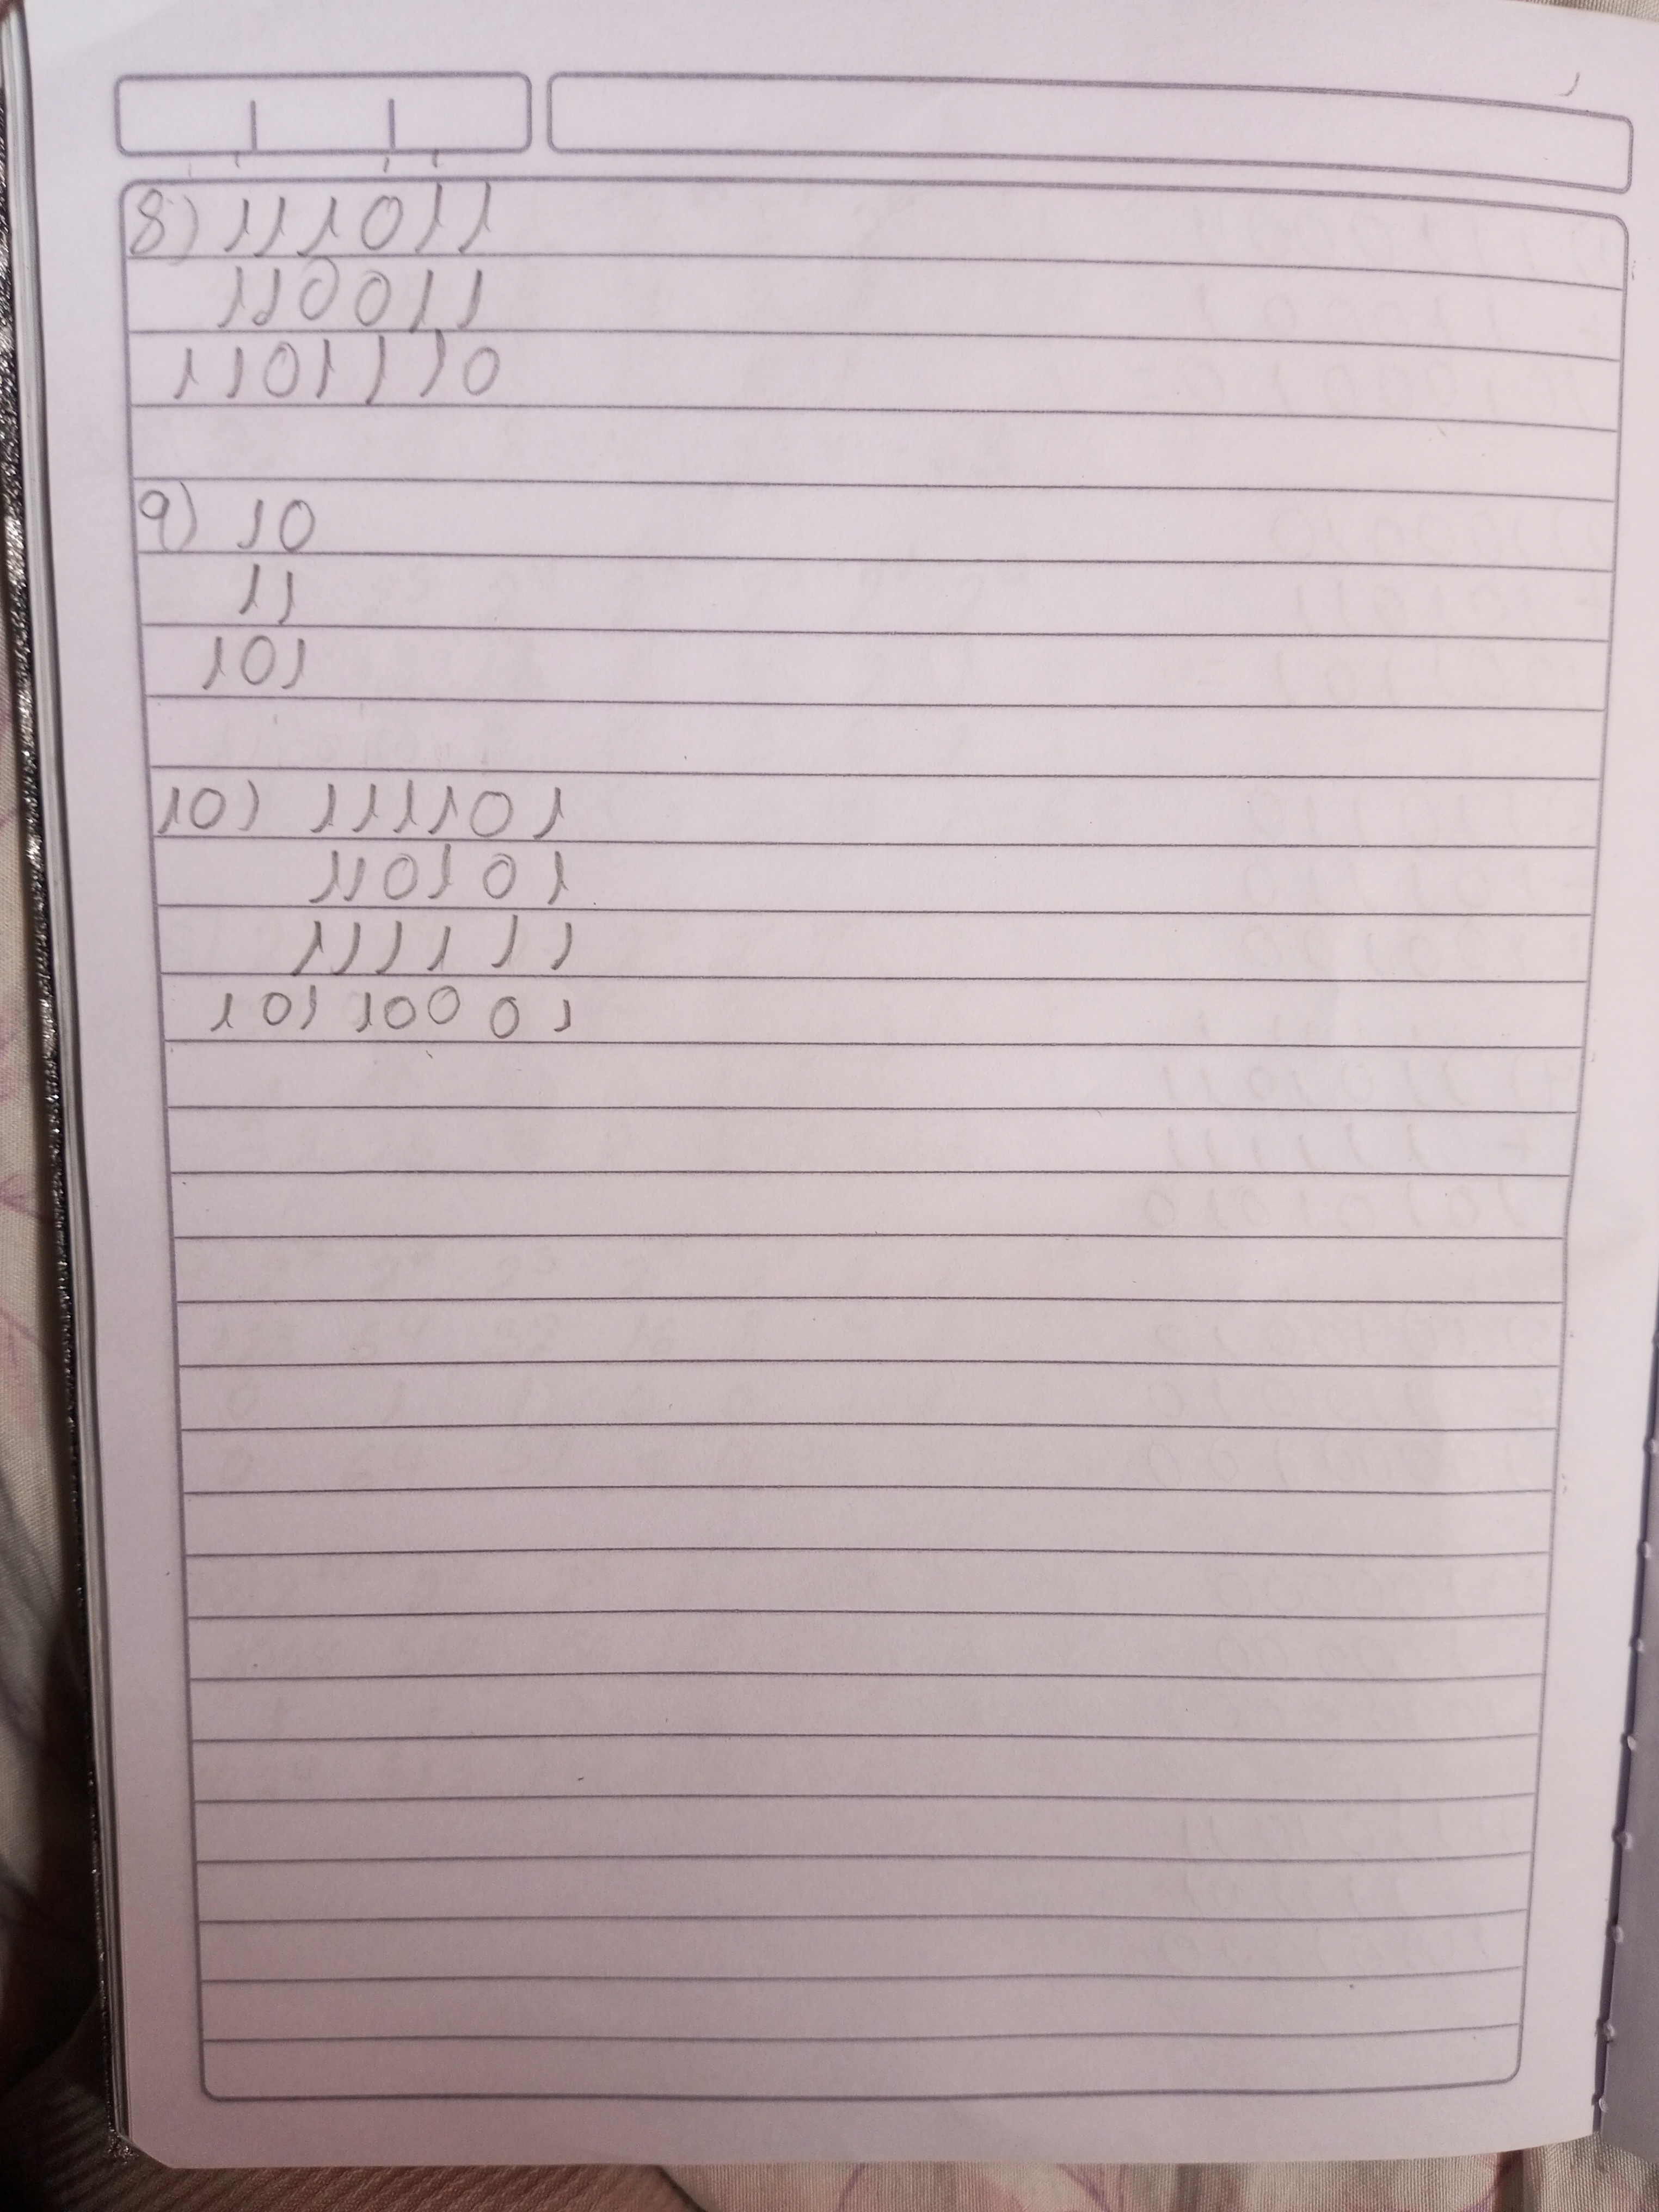 8) 111011
110011
1101110
9) 10
11
101
10) 111101
110101
111111
10110001